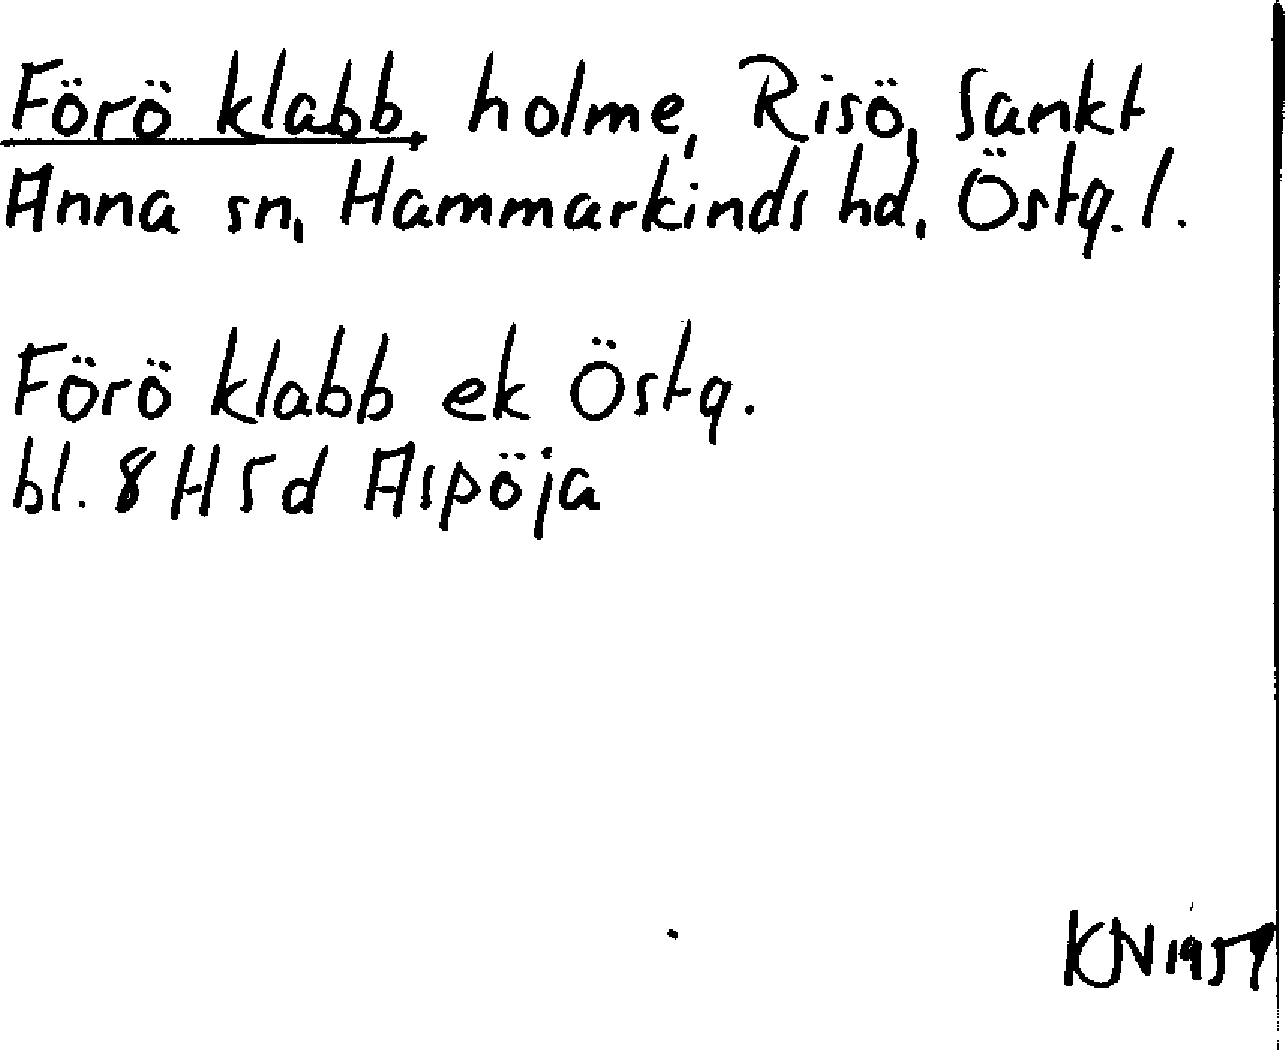 Förö klabb, holme, Risö, Sankt
Anna sn, Hammarkinds hd, Östg. l.
Förö klabb ek Östg.
bl. 8 H 5 d Aspöja
KN 1957